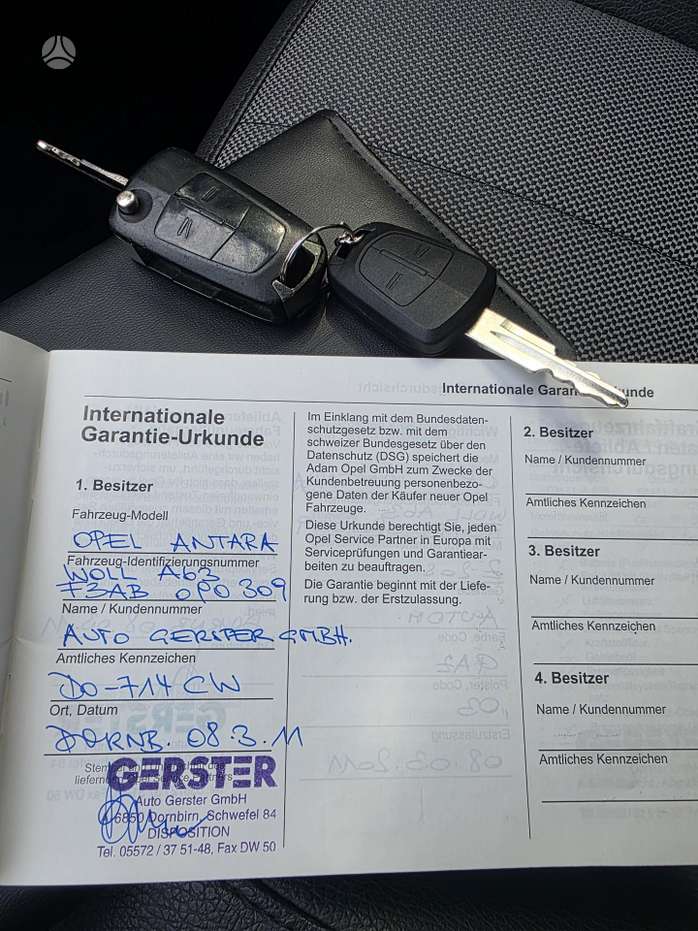 Internationale Garan
Internationale
Garantie-Urkunde
1. Besitzer
Fahrzeug-Modell
OPEL ANTARA
Fahrzeug-Identifizierungsnummer
WOLL A63
F3AB OPO 309
Name / Kundennummer
AUTO GERSTER GMBH.
Amtliches Kennzeichen
DO-714 CW
Ort, Datum
DORNB. 08.3.11
GERSTER
Auto Gerster GmbH
6850 Dornbirn, Schwefel 84
DISPOSITION
Tel. 05572 / 37 51-48, Fax DW 50
Im Einklang mit dem Bundesdaten-
schutzgesetz bzw. mit dem
schweizer Bundesgesetz über den
Datenschutz (DSG) speichert die
Adam Opel GmbH zum Zwecke der
Kundenbetreuung personenbezo-
gene Daten der Käufer neuer Opel
Fahrzeuge.
Diese Urkunde berechtigt Sie, jeden
Opel Service Partner in Europa mit
Serviceprüfungen und Garantiear-
beiten zu beauftragen.
Die Garantie beginnt mit der Liefe-
rung bzw. der Erstzulassung.
2. Besitzer
Name / Kundennummer
Amtliches Kennzeichen
3. Besitzer
Name / Kundennummer
Amtliches Kennzeichen
4. Besitzer
Name / Kundennummer
Amtliches Kennzeichen